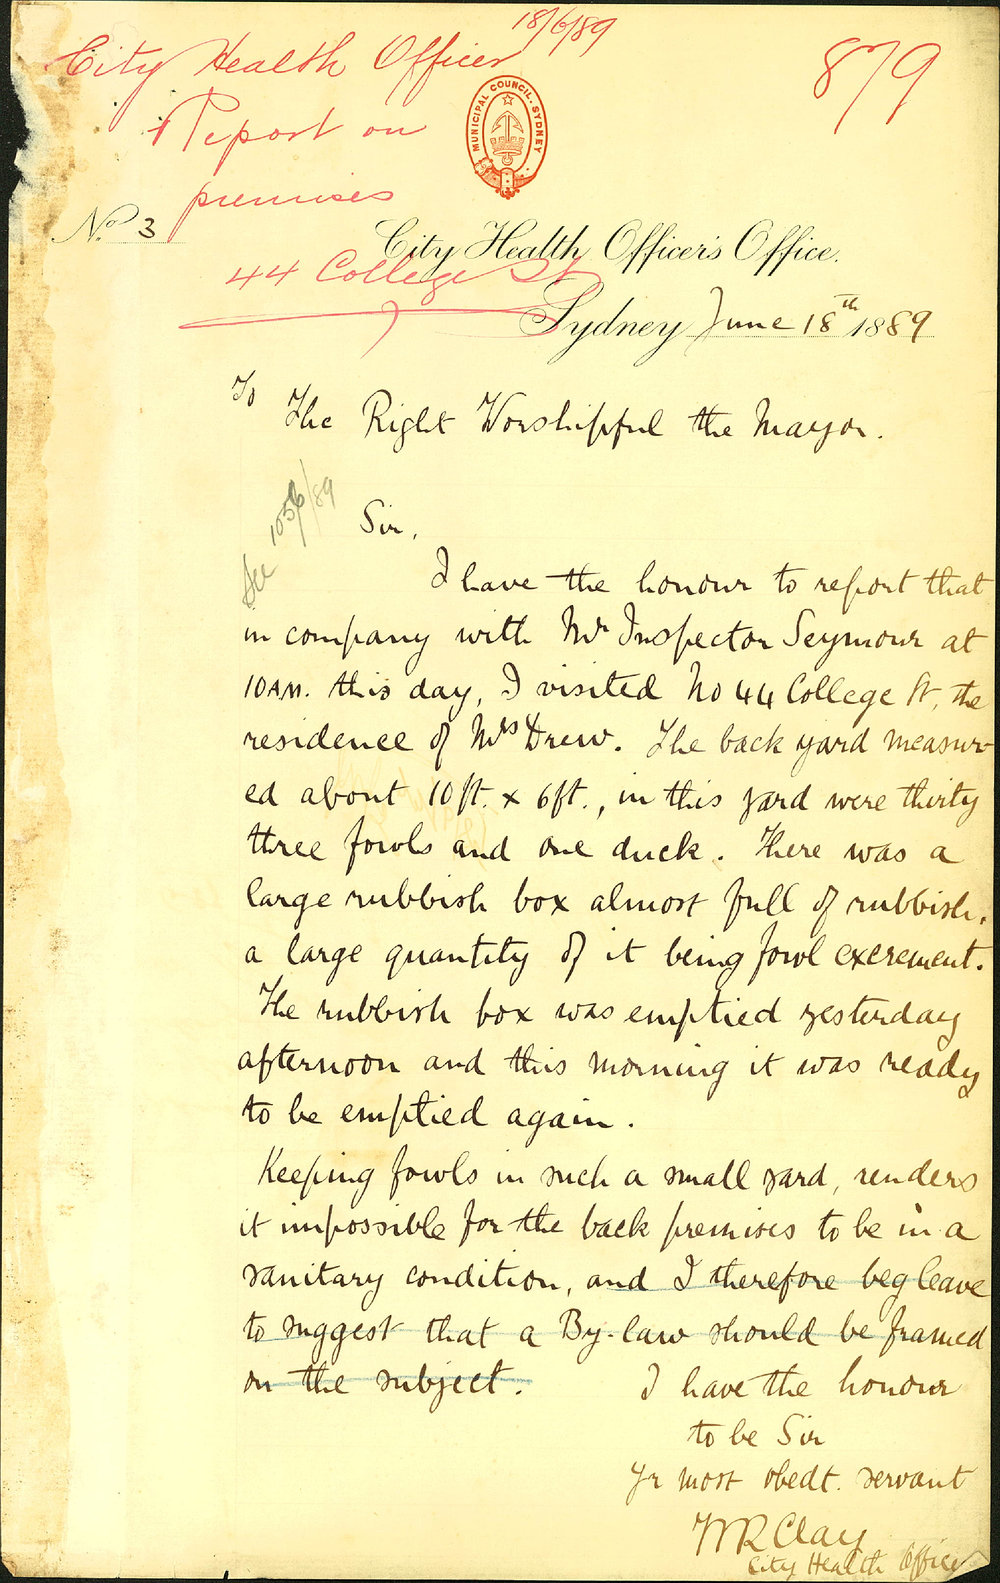 18/6/89
City Health Officer
Report on
premises
44 College St
879
MUNICIPAL COUNCIL. SYDNEY
No. 3
City Health Officer's Office.
Sydney June 18th 1889
To
The Right Worshipful the Mayor.
See 1056/89
Sir,
I have the honour to report that
in company with Mr Inspector Seymour at
10 AM. this day, I visited No 44 College St, the
residence of Mrs Drew. The back yard measur-
ed about 10 ft. x 6 ft., in this yard were thirty
three fowls and one duck. There was a
large rubbish box almost full of rubbish,
a large quantity of it being fowl excrement.
The rubbish box was emptied yesterday
afternoon and this morning it was ready
to be emptied again.
Keeping fowls in such a small yard, renders
it impossible for the back premises to be in a
sanitary condition, and I therefore beg leave
to suggest that a By-law should be framed
on the subject.
I have the honour
to be Sir
Yr most obedt. servant
WR Clay
City Health Officer